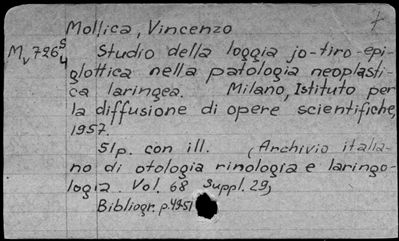 Mollica, Vincenzo
7
Mv726 S4 Studio della loggia jo-tiro-epi-
glottica nella patologia neoplasti-
ca laringea. Milano, Istituto per
la diffusione di opere scientifiche,
1957.
51p. con ill. (Archivio italia-
no di otologia rinologia e laringo-
logia. Vol. 68 Suppl. 29)
Bibliogr. p.49-51